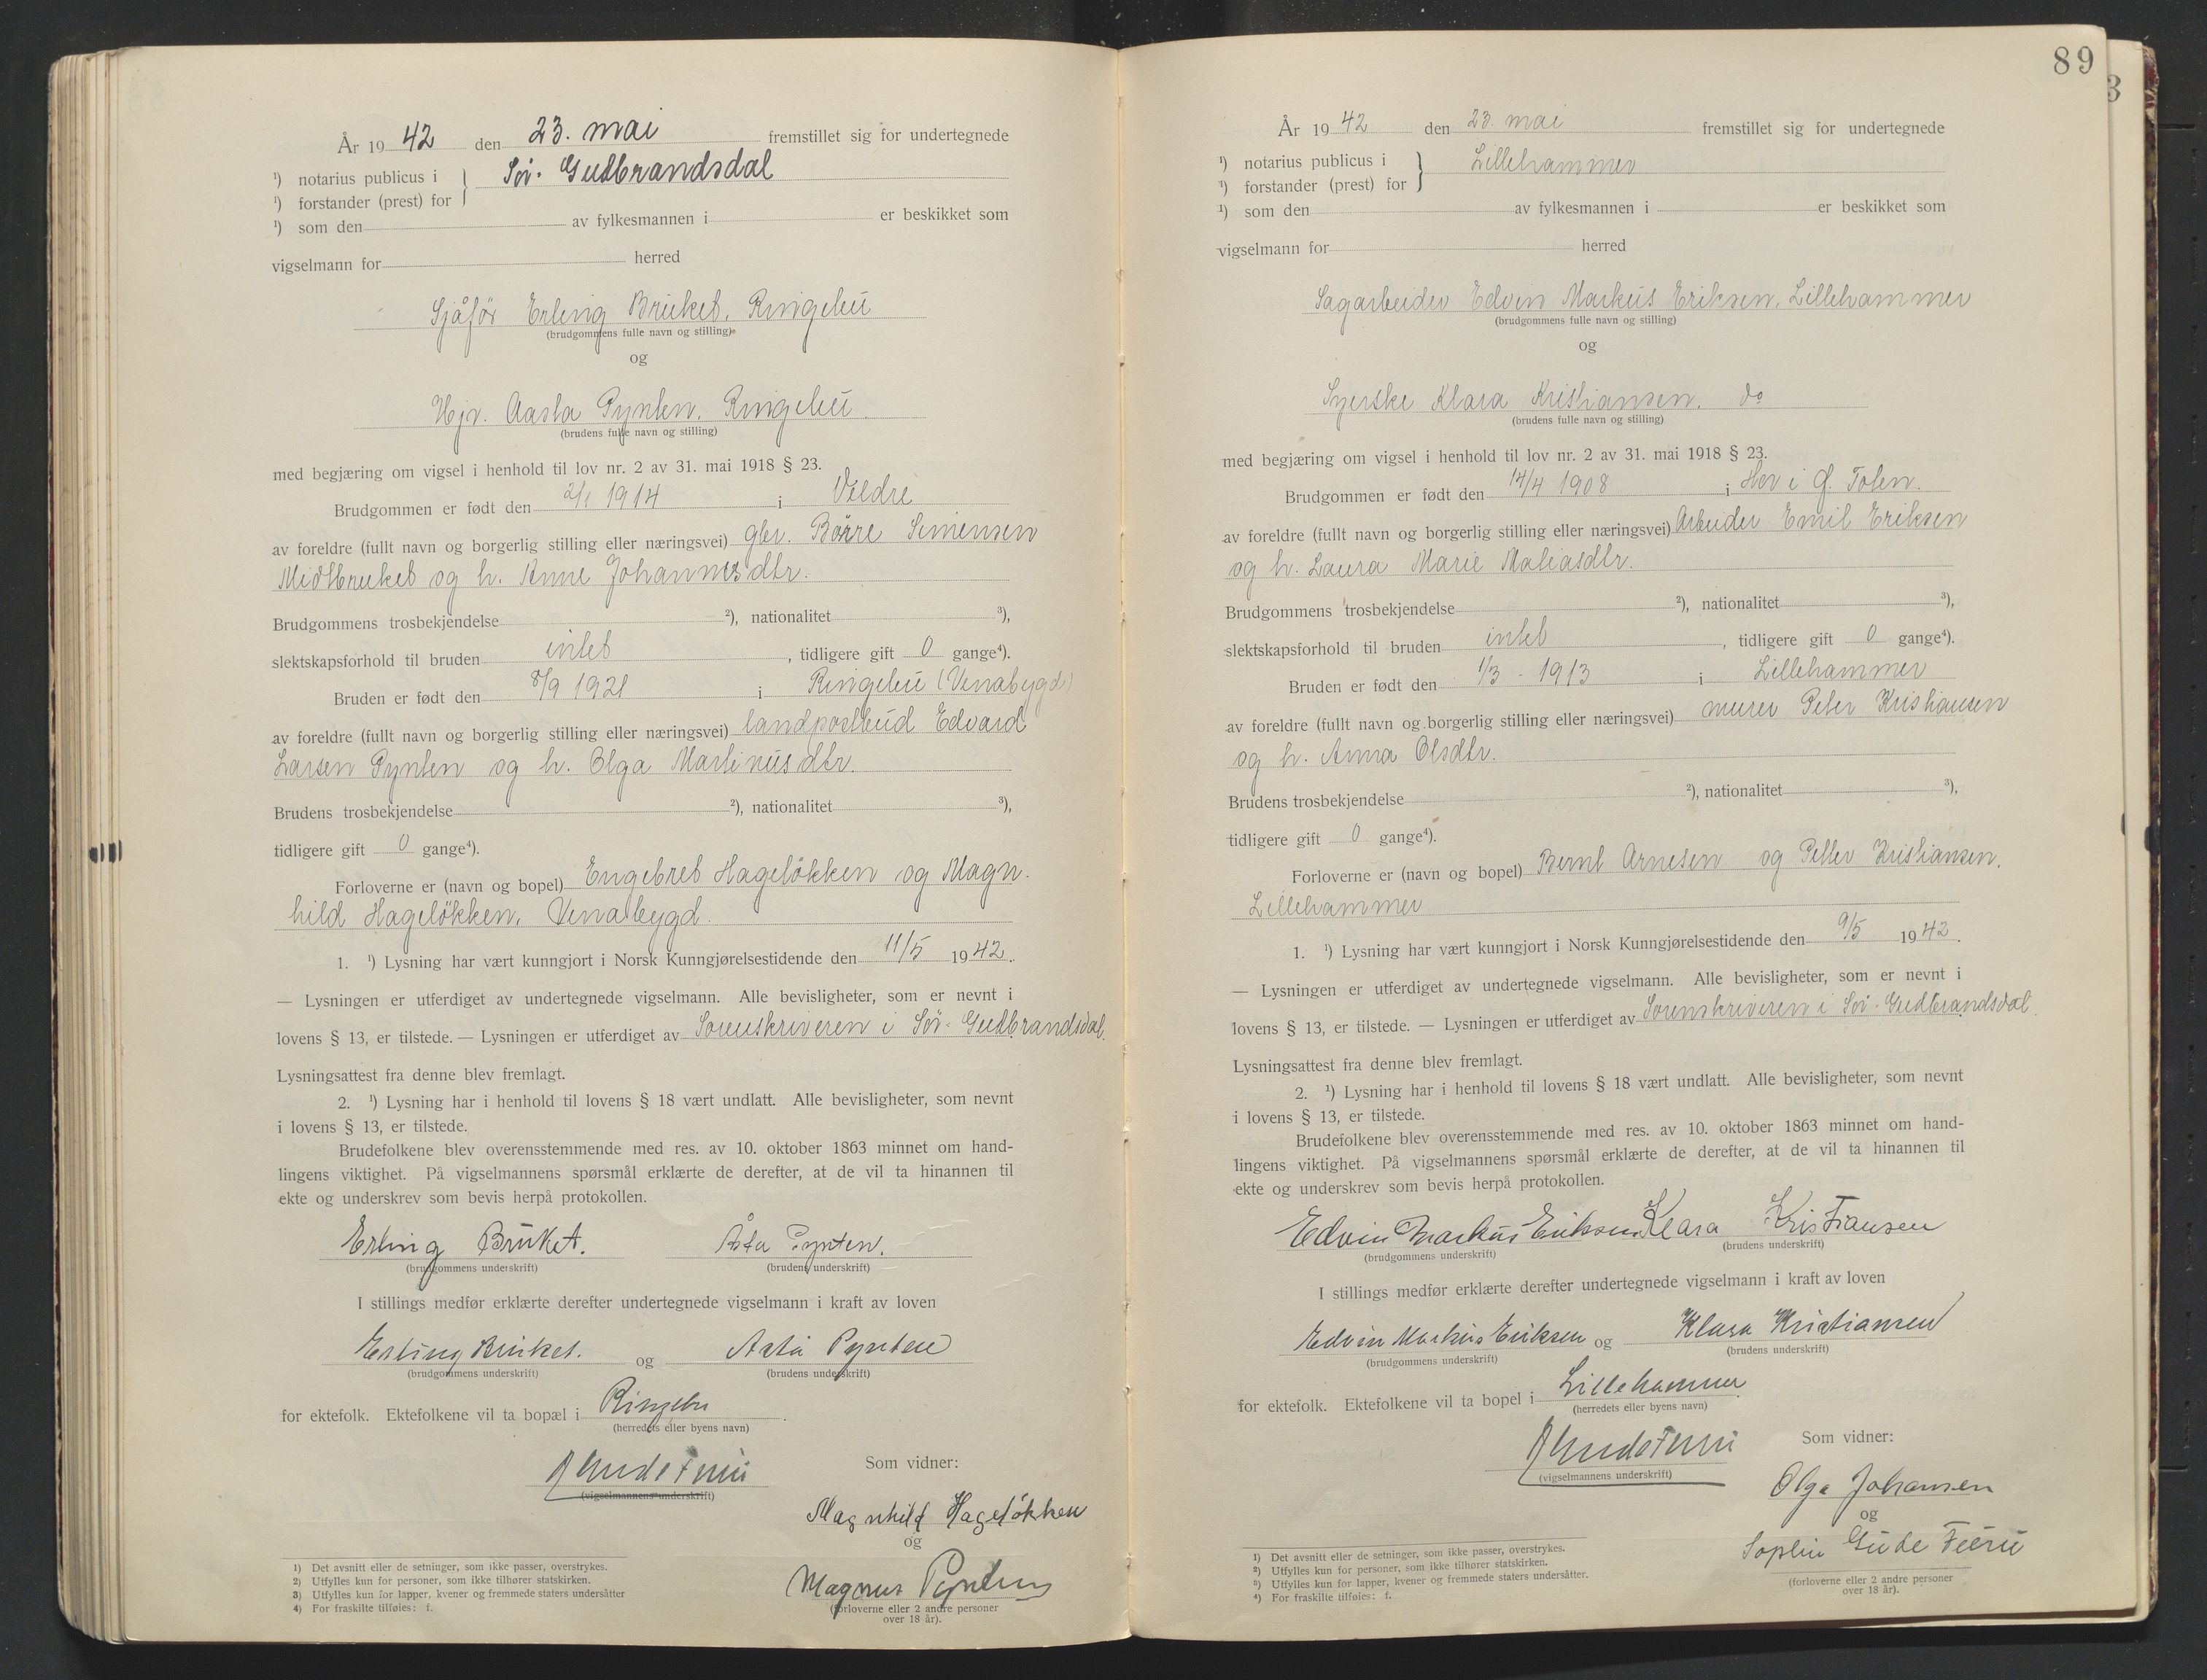 År 1942 den 23. mai fremstillet sig for undertegnede
¹) notarius publicus i } Sør-Gudbrandsdal
¹) forstander (prest) for
¹) som den av fylkesmannen i er beskikket som
vigselmann for herred
Sjåfør Erling Bruket, Ringebu
(brudgommens fulle navn og stilling)
og
Hjv. Aasta Pynten, Ringebu
(brudens fulle navn og stilling)
med begjæring om vigsel i henhold til lov nr. 2 av 31. mai 1918 § 23.
Brudgommen er født den 2/1 1914 i Veldre
av foreldre (fullt navn og borgerlig stilling eller næringsvei) gbr. Börre Simensen
Midtbruket og h. Anne Johannesdtr.
Brudgommens trosbekjendelse ²), nationalitet ³),
slektskapsforhold til bruden intet, tidligere gift 0 gange⁴).
Bruden er født den 8/9 1921 i Ringebu (Venabygd)
av foreldre (fullt navn og borgerlig stilling eller næringsvei) landpostbud Edvard
Larsen Pynten og h. Olga Martinusdtr.
Brudens trosbekjendelse ²), nationalitet ³),
tidligere gift 0 gange⁴).
Forloverne er (navn og bopel) Engebret Hageløkken og Magn-
hild Hageløkken, Venabygd.
1. ¹) Lysning har vært kunngjort i Norsk Kunngjørelsestidende den 11/5 1942.
— Lysningen er utferdiget av undertegnede vigselmann. Alle bevisligheter, som er nevnt i
lovens § 13, er tilstede. — Lysningen er utferdiget av Sorenskriveren i Sør-Gudbrandsdal.
Lysningsattest fra denne blev fremlagt.
2. ¹) Lysning har i henhold til lovens § 18 vært undlatt. Alle bevisligheter, som nevnt
i lovens § 13, er tilstede.
Brudefolkene blev overensstemmende med res. av 10. oktober 1863 minnet om hand-
lingens viktighet. På vigselmannens spørsmål erklærte de derefter, at de vil ta hinannen til
ekte og underskrev som bevis herpå protokollen.
Erling Bruket. Åsta Pynten.
(brudgommens underskrift) (brudens underskrift)
I stillings medfør erklærte derefter undertegnede vigselmann i kraft av loven
Erling Bruket. og Asta Pynten
(brudgommens underskrift) (brudens underskrift)
for ektefolk. Ektefolkene vil ta bopæl i Ringebu
(herredets eller byens navn)
(vigselmannens underskrift)
Som vidner:
Magnhild Hageløkken
og
Magnus Pynten
(forloverne eller 2 andre personer
over 18 år).
1) Det avsnitt eller de setninger, som ikke passer, overstrykes.
2) Utfylles kun for personer, som ikke tilhører statskirken.
3) Utfylles kun for lapper, kvener og fremmede staters undersåtter
4) For fraskilte tilføies: f.
89
År 1942 den 23. mai fremstillet sig for undertegnede
¹) notarius publicus i } Lillehammer
¹) forstander (prest) for
¹) som den av fylkesmannen i er beskikket som
vigselmann for herred
Sagarbeider Edvin Markus Eriksen, Lillehammer
(brudgommens fulle navn og stilling)
og
Syerske Klara Kristiansen. do
(brudens fulle navn og stilling)
med begjæring om vigsel i henhold til lov nr. 2 av 31. mai 1918 § 23.
Brudgommen er født den 14/4 1908 i Hov i Ø. Toten.
av foreldre (fullt navn og borgerlig stilling eller næringsvei) Arbeider Emil Eriksen
og h. Laura Marie Matiasdtr.
Brudgommens trosbekjendelse ²), nationalitet ³),
slektskapsforhold til bruden intet, tidligere gift 0 gange⁴).
Bruden er født den 1/3 - 1913 i Lillehammer
av foreldre (fullt navn og borgerlig stilling eller næringsvei) murer Peter Kristiansen
og h. Anna Olsdtr.
Brudens trosbekjendelse ²), nationalitet ³),
tidligere gift 0 gange⁴).
Forloverne er (navn og bopel) Bernt Arnesen og Petter Kristiansen,
Lillehammer
1. ¹) Lysning har vært kunngjort i Norsk Kunngjørelsestidende den 9/5 1942.
— Lysningen er utferdiget av undertegnede vigselmann. Alle bevisligheter, som er nevnt i
lovens § 13, er tilstede. — Lysningen er utferdiget av Sorenskriveren i Sør-Gudbrandsdal.
Lysningsattest fra denne blev fremlagt.
2. ¹) Lysning har i henhold til lovens § 18 vært undlatt. Alle bevisligheter, som nevnt
i lovens § 13, er tilstede.
Brudefolkene blev overensstemmende med res. av 10. oktober 1863 minnet om hand-
lingens viktighet. På vigselmannens spørsmål erklærte de derefter, at de vil ta hinannen til
ekte og underskrev som bevis herpå protokollen.
Edvin Markus Eriksen Klara Kristiansen
(brudgommens underskrift) (brudens underskrift)
I stillings medfør erklærte derefter undertegnede vigselmann i kraft av loven
Edvin Markus Eriksen og Klara Kristiansen
(brudgommens underskrift) (brudens underskrift)
for ektefolk. Ektefolkene vil ta bopel i Lillehammer
(herredets eller byens navn)
(vigselmannens underskrift)
Som vidner:
Olga Johansen
og
Gude
(forloverne eller 2 andre personer
over 18 år).
1) Det avsnitt eller de setninger, som ikke passer, overstrykes.
2) Utfylles kun for personer, som ikke tilhører statskirken.
3) Utfylles kun for lapper, kvener og fremmede staters undersåtter.
4) For fraskilte tilføies: f.